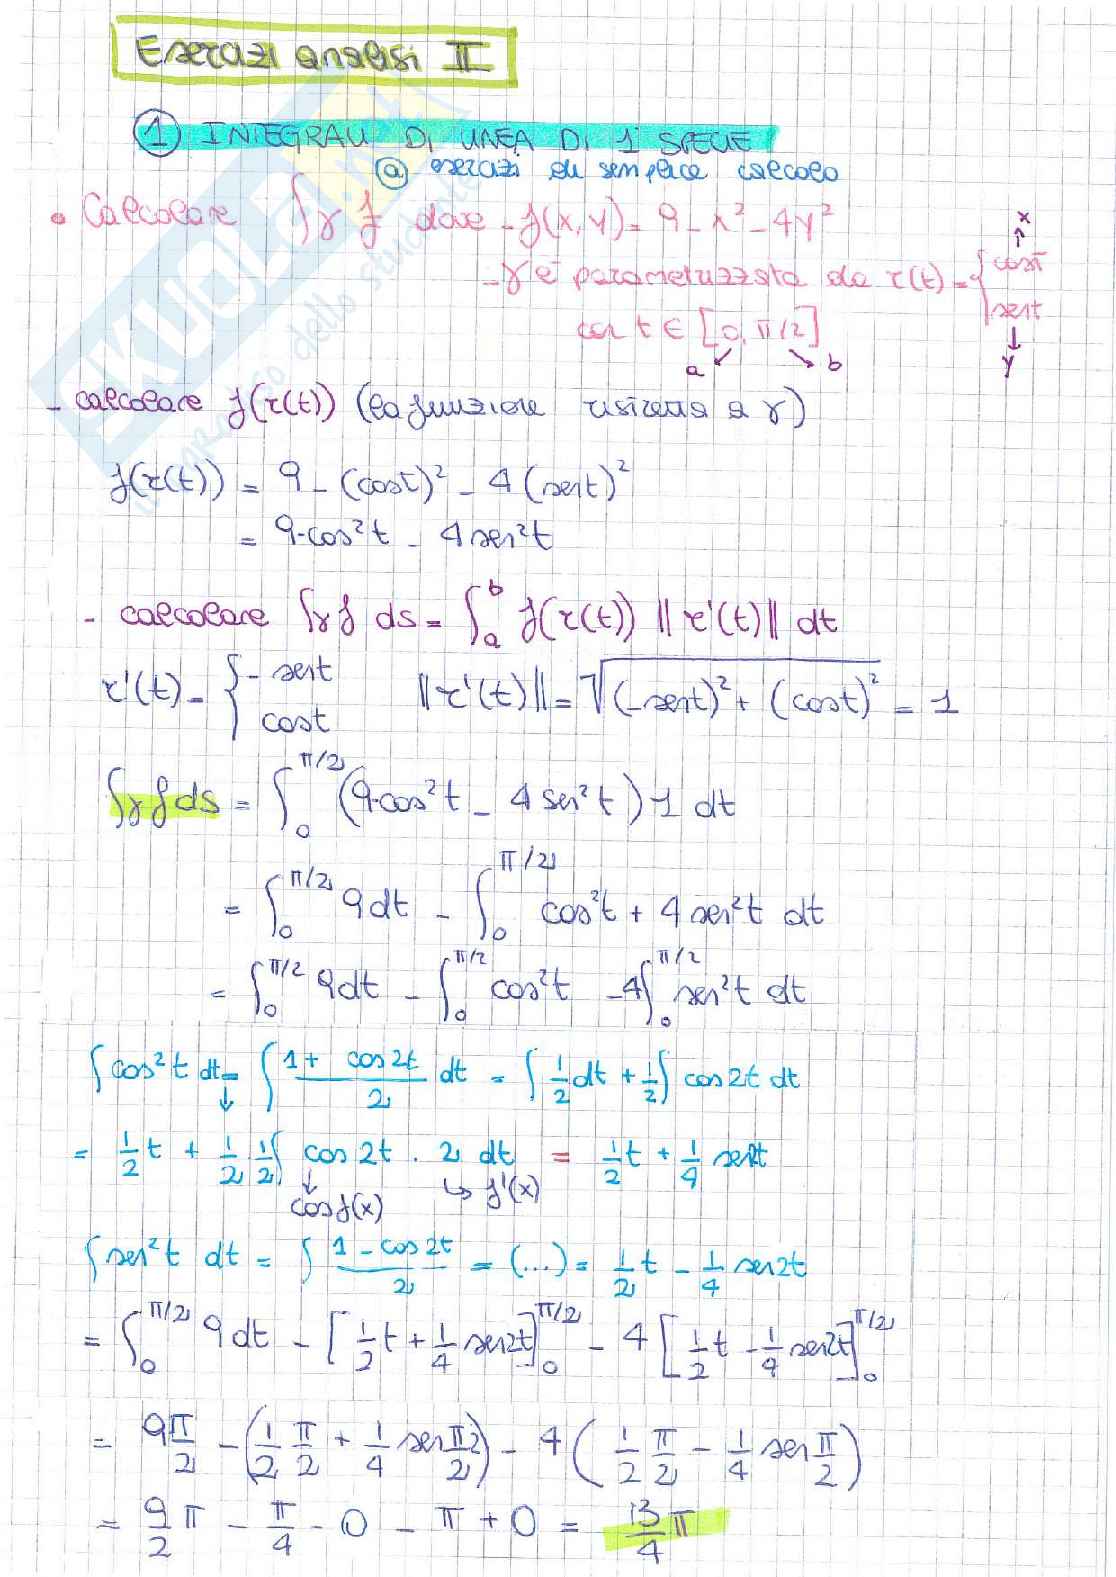 Esercizi analisi II
① INTEGRALI DI LINEA DI 1° SPECIE
ⓐ esercizi di semplice calcolo
• Calcolare ∫γ f dove - f(x,y) = 9 - x² - 4y²
- γ è parametrizzata da r(t) = { cost → x
sent → y
con t ∈ [0, π/2]
a b
- calcolare f(r(t)) (la funzione ristretta a γ)
f(r(t)) = 9 - (cost)² - 4(sent)²
= 9-cos²t - 4sen²t
- calcolare ∫γ f ds = ∫ₐᵇ f(r(t)) ||r'(t)|| dt
r'(t) = { -sent
cost ||r'(t)|| = √(-sent)² + (cost)² = 1
∫γ f ds = ∫₀^π/2 (9-cos²t - 4sen²t) 1 dt
= ∫₀^π/2 9dt - ∫₀^π/2 cos²t + 4sen²t dt
= ∫₀^π/2 9dt - ∫₀^π/2 cos²t - 4∫₀^π/2 sen²t dt
∫cos²t dt = ∫ (1 + cos2t)/2 dt = ∫ 1/2 dt + 1/2 ∫ cos2t dt
= 1/2 t + 1/2 1/2 ∫ cos2t · 2 dt = 1/2 t + 1/4 sen2t
↓ cosf(x) ↳ f'(x)
∫sen²t dt = ∫ (1 - cos2t)/2 = (...) = 1/2 t - 1/4 sen2t
= ∫₀^π/2 9dt - [1/2 t + 1/4 sen2t]₀^π/2 - 4[1/2 t - 1/4 sen2t]₀^π/2
= 9π/2 - (1/2 π/2 + 1/4 sen π/2 2) - 4(1/2 π/2 - 1/4 sen π/2)
= 9/2 π - π/4 - 0 - π + 0 = 13/4 π
SKUOLA.net
dello studente